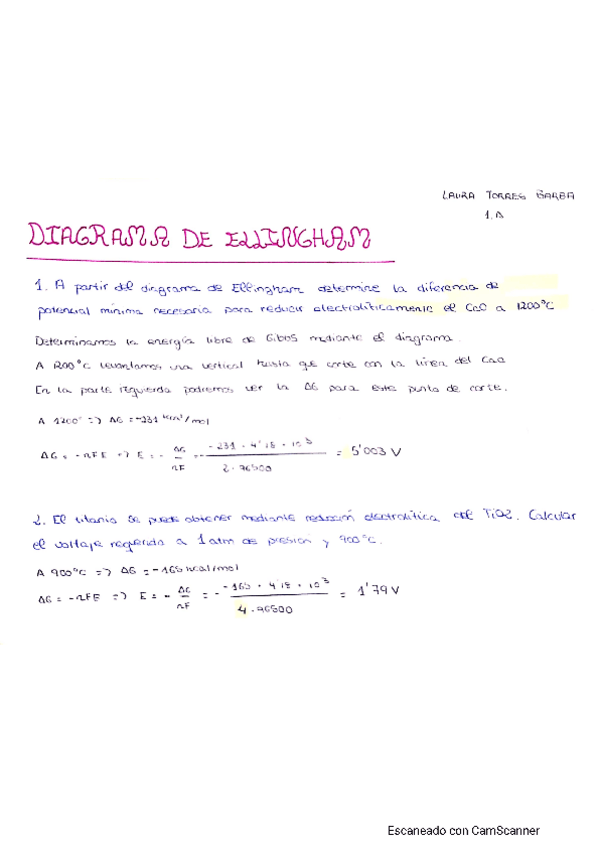 LAURA TORRES BARBA
1.A
DIAGRAMA DE ELLINGHAM
1. A partir del diagrama de Ellingham determine la diferencia de
potencial mínima necesaria para reducir electrolíticamente el CaO a 1200°C
Determinamos la energía libre de Gibbs mediante el diagrama.
A 1200°C levantamos una vertical hasta que corte con la línea del CaO
En la parte izquierda podremos ver la ΔG para este punto de corte.
A 1200° => ΔG = -231 kcal/mol
ΔG = -nFE => E = - ΔG/nF = - -231 · 4'18 · 10³ / 2 · 96500 = 5'003 V
2. El titanio se puede obtener mediante reducción electrolítica del TiO2. Calcular
el voltaje requerido a 1 atm de presión y 900°C.
A 900°C => ΔG = -165 kcal/mol
ΔG = -nFE => E = - ΔG/nF = - -165 · 4'18 · 10³ / 4 · 96500 = 1'79 V
Escaneado con CamScanner